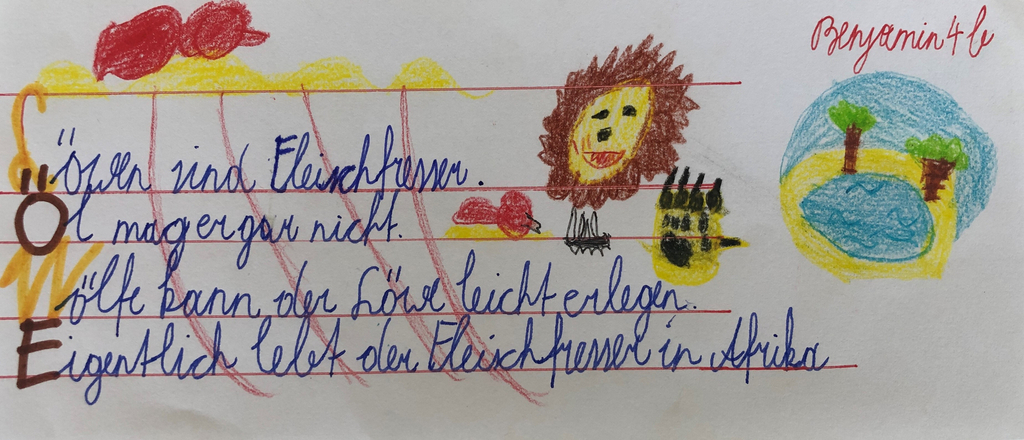 Benjamin 4b
Löwen sind Fleischfresser.
Öl mag er gar nicht.
Wölfe kann der Löwe leicht erlegen.
Eigentlich lebt der Fleischfresser in Afrika